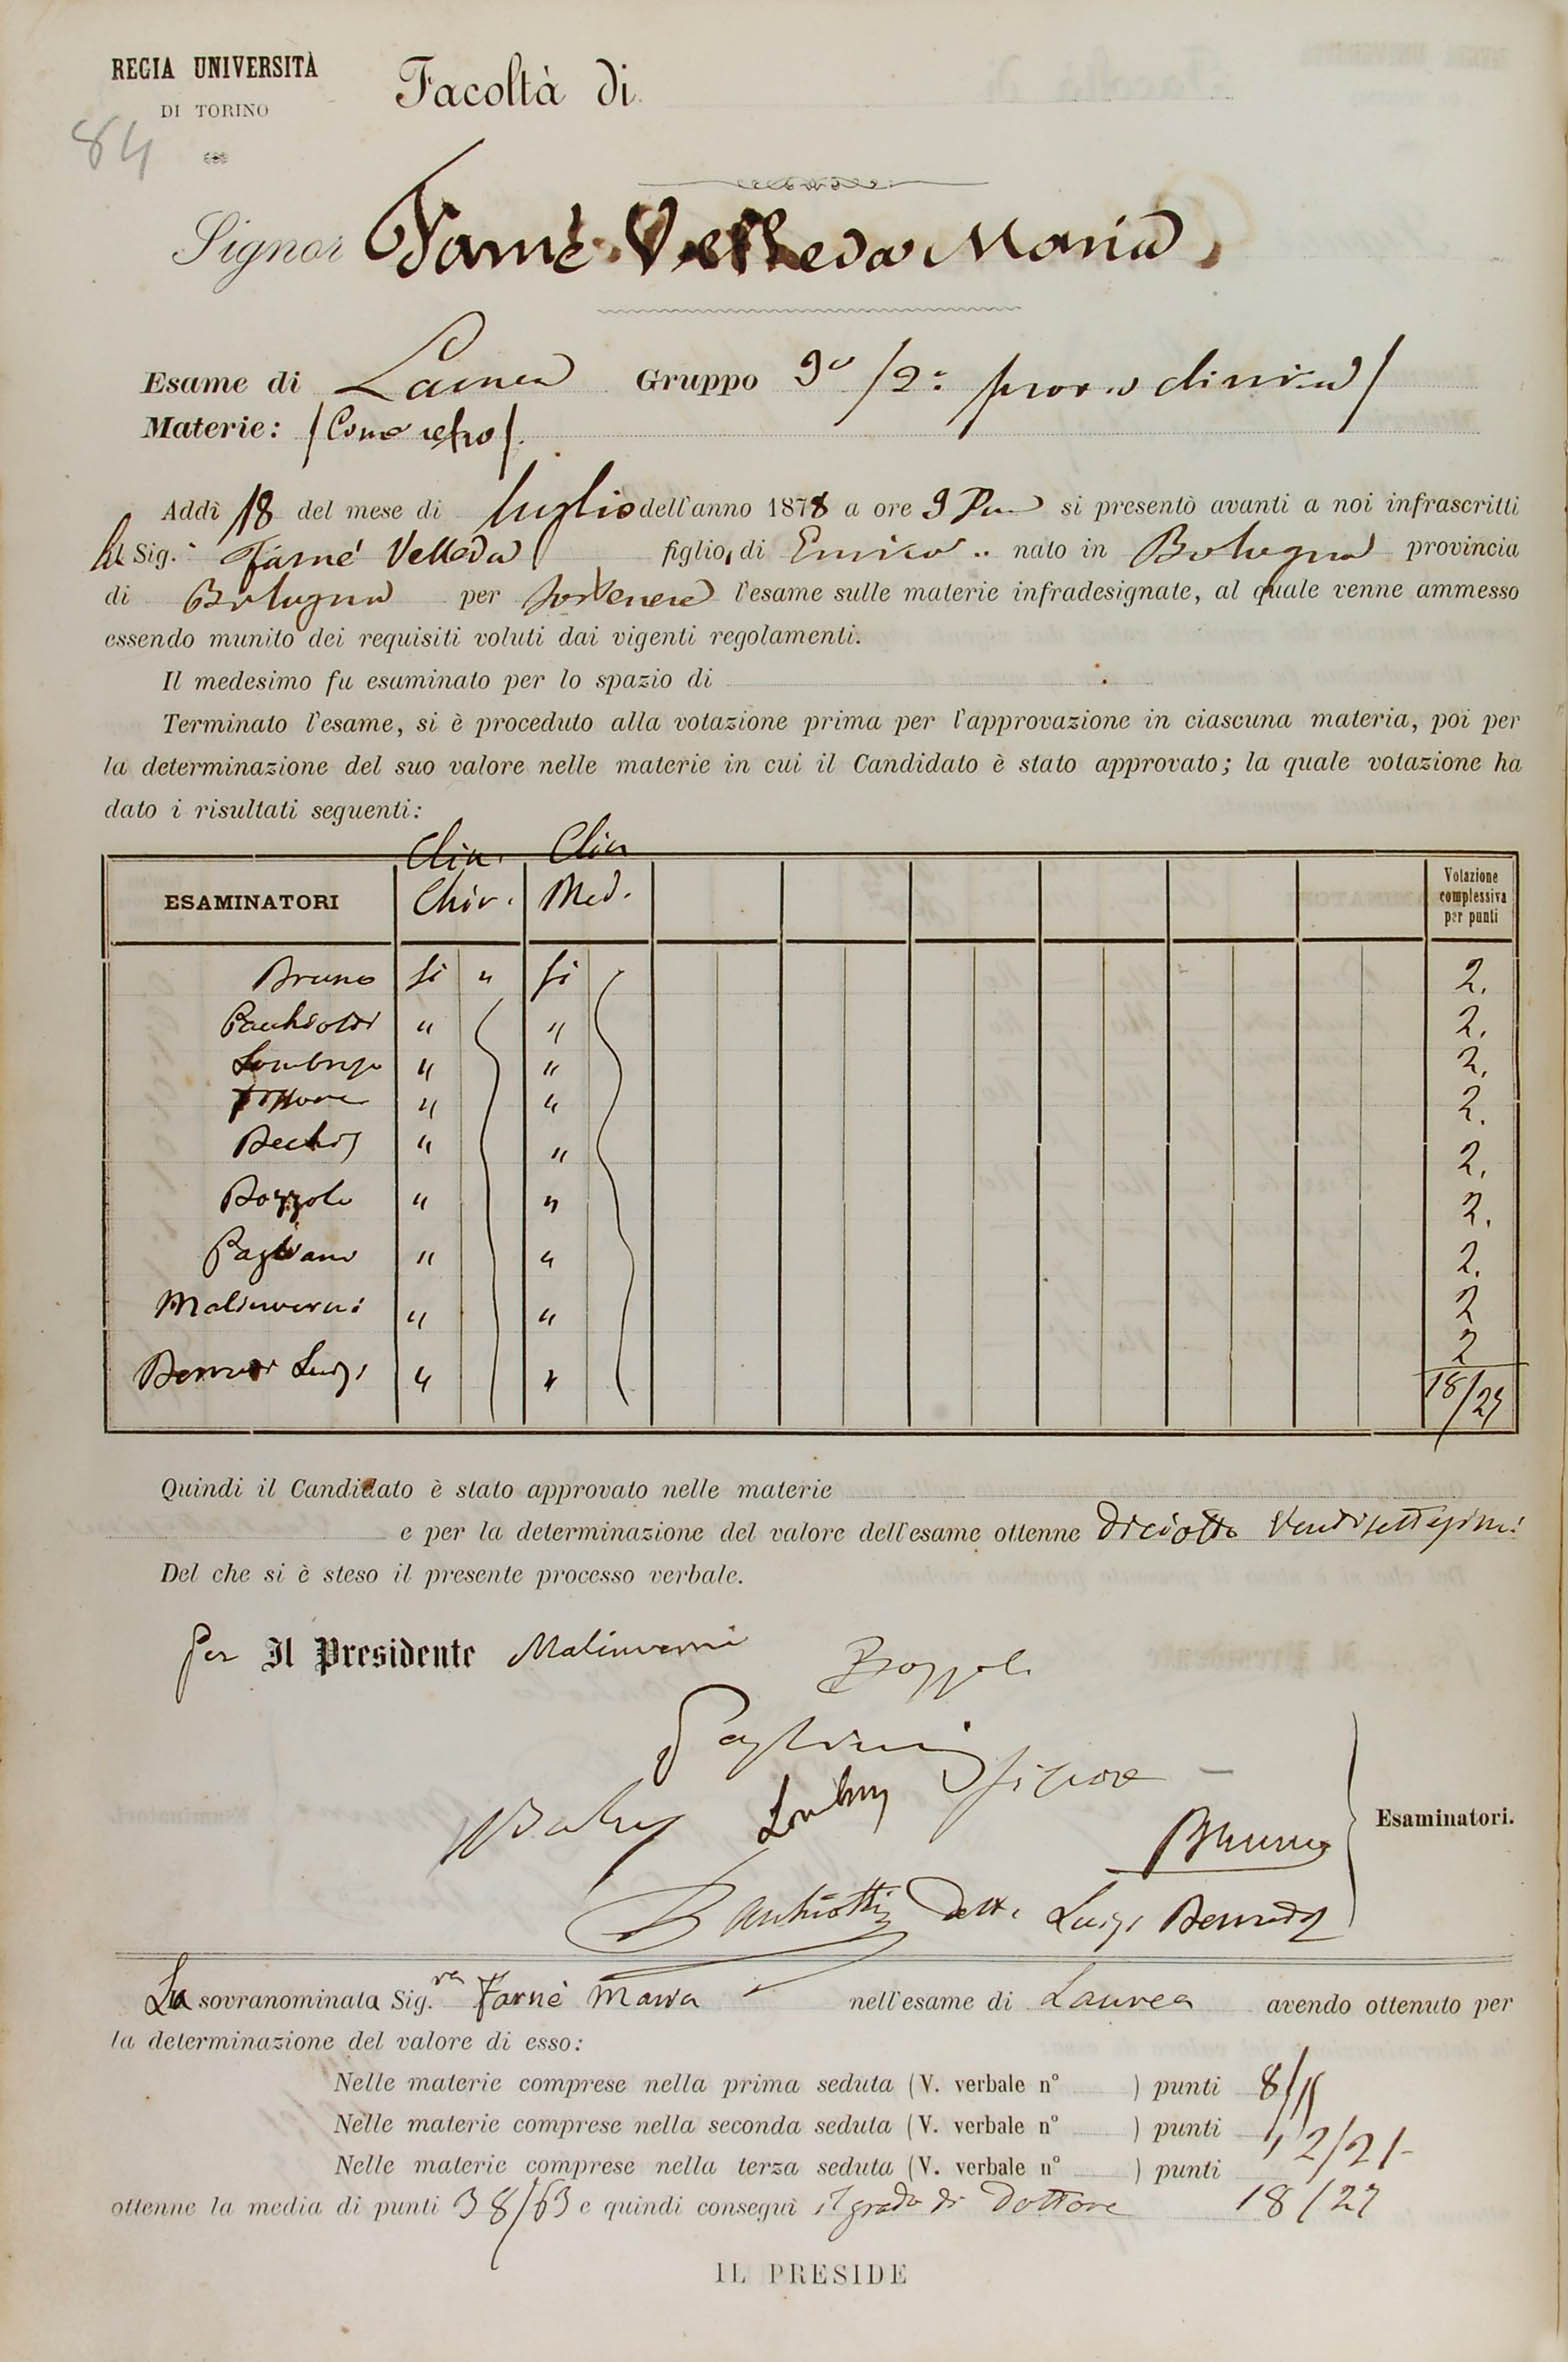 REGIA UNIVERSITÀ
DI TORINO
Facoltà di
84
Signor Farné Velleda Maria
Esame di Laurea Gruppo 3º /2ª prova clinica/
Materie: /Come retro/.
Addì 18 del mese di luglio dell'anno 1878 a ore 9 si presentò avanti a noi infrascritti
la Sig.ª Farné Velleda figlia di Enrico nato in Bologna provincia
di Bologna per sostenere l'esame sulle materie infradesignate, al quale venne ammesso
essendo munito dei requisiti voluti dai vigenti regolamenti.
Il medesimo fu esaminato per lo spazio di
Terminato l'esame, si è proceduto alla votazione prima per l'approvazione in ciascuna materia, poi per
la determinazione del suo valore nelle materie in cui il Candidato è stato approvato; la quale votazione ha
dato i risultati seguenti:
ESAMINATORI Clin. Chir. Clin Med. Votazione complessiva per punti
Bruno si " si 2.
Pacchiotti " " 2.
Lombroso " " 2.
" " 2.
Bechis " " 2.
Bozzolo " " 2.
Pagliani " " 2.
Malinverni " " 2
Berruti Luigi " " 2
18/27
Quindi il Candidato è stato approvato nelle materie
e per la determinazione del valore dell'esame ottenne diciotto ventisettesimi
Del che si è steso il presente processo verbale.
per Il Presidente Malinverni
Bozzolo
Pagliani
Lombroso
Bruno
Esaminatori.
Pacchiotti Dott. Luigi Berruti
La sovranominata Sig.ra Farnè Maria nell'esame di Laurea avendo ottenuto per
la determinazione del valore di esso:
Nelle materie comprese nella prima seduta (V. verbale nº ) punti 8/15
Nelle materie comprese nella seconda seduta (V. verbale nº ) punti 12/21
Nelle materie comprese nella terza seduta (V. verbale nº ) punti 18/27
ottenne la media di punti 38/63 e quindi conseguì il grado di Dottore
IL PRESIDE